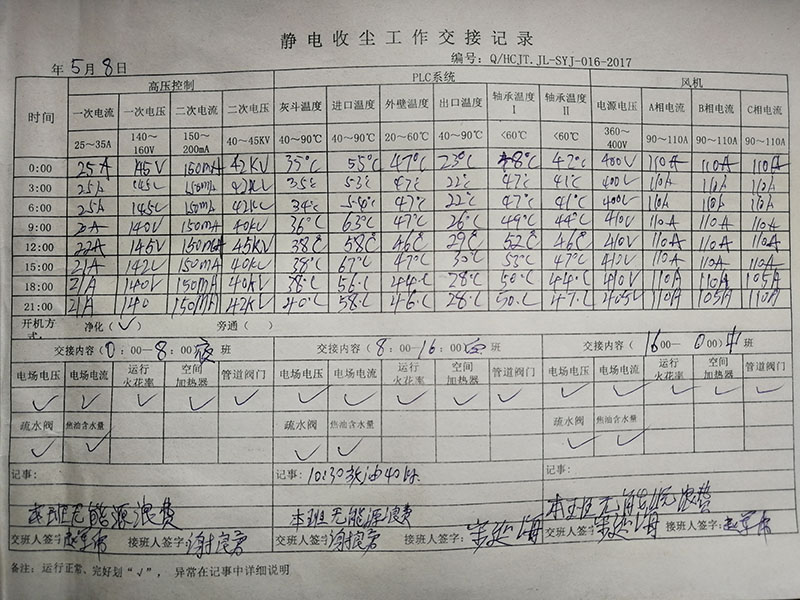 静电收尘工作交接记录
年 5月8日 编号: Q/HCJT.JL-SYJ-016-2017
时间 高压控制 PLC系统 风机
一次电流 一次电压 二次电流 二次电压 灰斗温度 进口温度 外壁温度 出口温度 轴承温度I 轴承温度II 电源电压 A相电流 B相电流 C相电流
25~35A 140~160V 150~200mA 40~45KV 40~90℃ 40~90℃ 20~60℃ 40~90℃ <60℃ <60℃ 360~400V 90~110A 90~110A 90~110A
0:00 25A 145V 150mA 42KV 35℃ 55℃ 47℃ 23℃ 48℃ 42℃ 400V 110A 110A 110A
3:00 25A 145V 150mA 42KV 35℃ 53℃ 47℃ 22℃ 47℃ 41℃ 400V 110A 110A 110A
6:00 25A 145V 150mA 42KV 34℃ 47℃ 22℃ 47℃ 41℃ 400V 110A 110A 110A
9:00 140V 150mA 40KV 36℃ 63℃ 47℃ 26℃ 49℃ 44℃ 410V 110A 110A 110A
12:00 22A 145V 150mA 45KV 38℃ 58℃ 46℃ 29℃ 52℃ 46℃ 410V 110A 110A 110A
15:00 21A 142V 150mA 40KV 38℃ 67℃ 47℃ 53℃ 47℃ 110A 110A 110A
18:00 21A 140V 150mA 40KV 38℃ 56℃ 44℃ 28℃ 50℃ 44℃ 410V 110A 110A 105A
21:00 21A 140 150mA 42KV 40℃ 58℃ 46℃ 28℃ 50℃ 47℃ 405V 110A 105A 110A
开机方式: 净化(✓) 旁通( )
交接内容(0:00—8:00)夜班 交接内容(8:00—16:00)白班 (16:00—0:00)中班
电场电压 电场电流 运行火花率 空间加热器 管道阀门 电场电压 电场电流 运行火花率 空间加热器 管道阀门 电场电压 电场电流 运行火花率 空间加热器 管道阀门
✓ ✓ ✓ ✓ ✓ ✓ ✓ ✓ ✓ ✓ ✓ ✓ ✓ ✓ ✓
疏水阀 焦油含水量 疏水阀 焦油含水量 疏水阀 焦油含水量
✓ ✓ ✓ ✓ ✓ ✓
记事: 记事: 10:30放油40 记事:
本班无能源浪费 本班无能源浪费 本班无能源浪费
交班人签字: 接班人签字: 交班人签字: 接班人签字: 交班人签字: 接班人签字:
备注: 运行正常、完好划“✓”, 异常在记事中详细说明